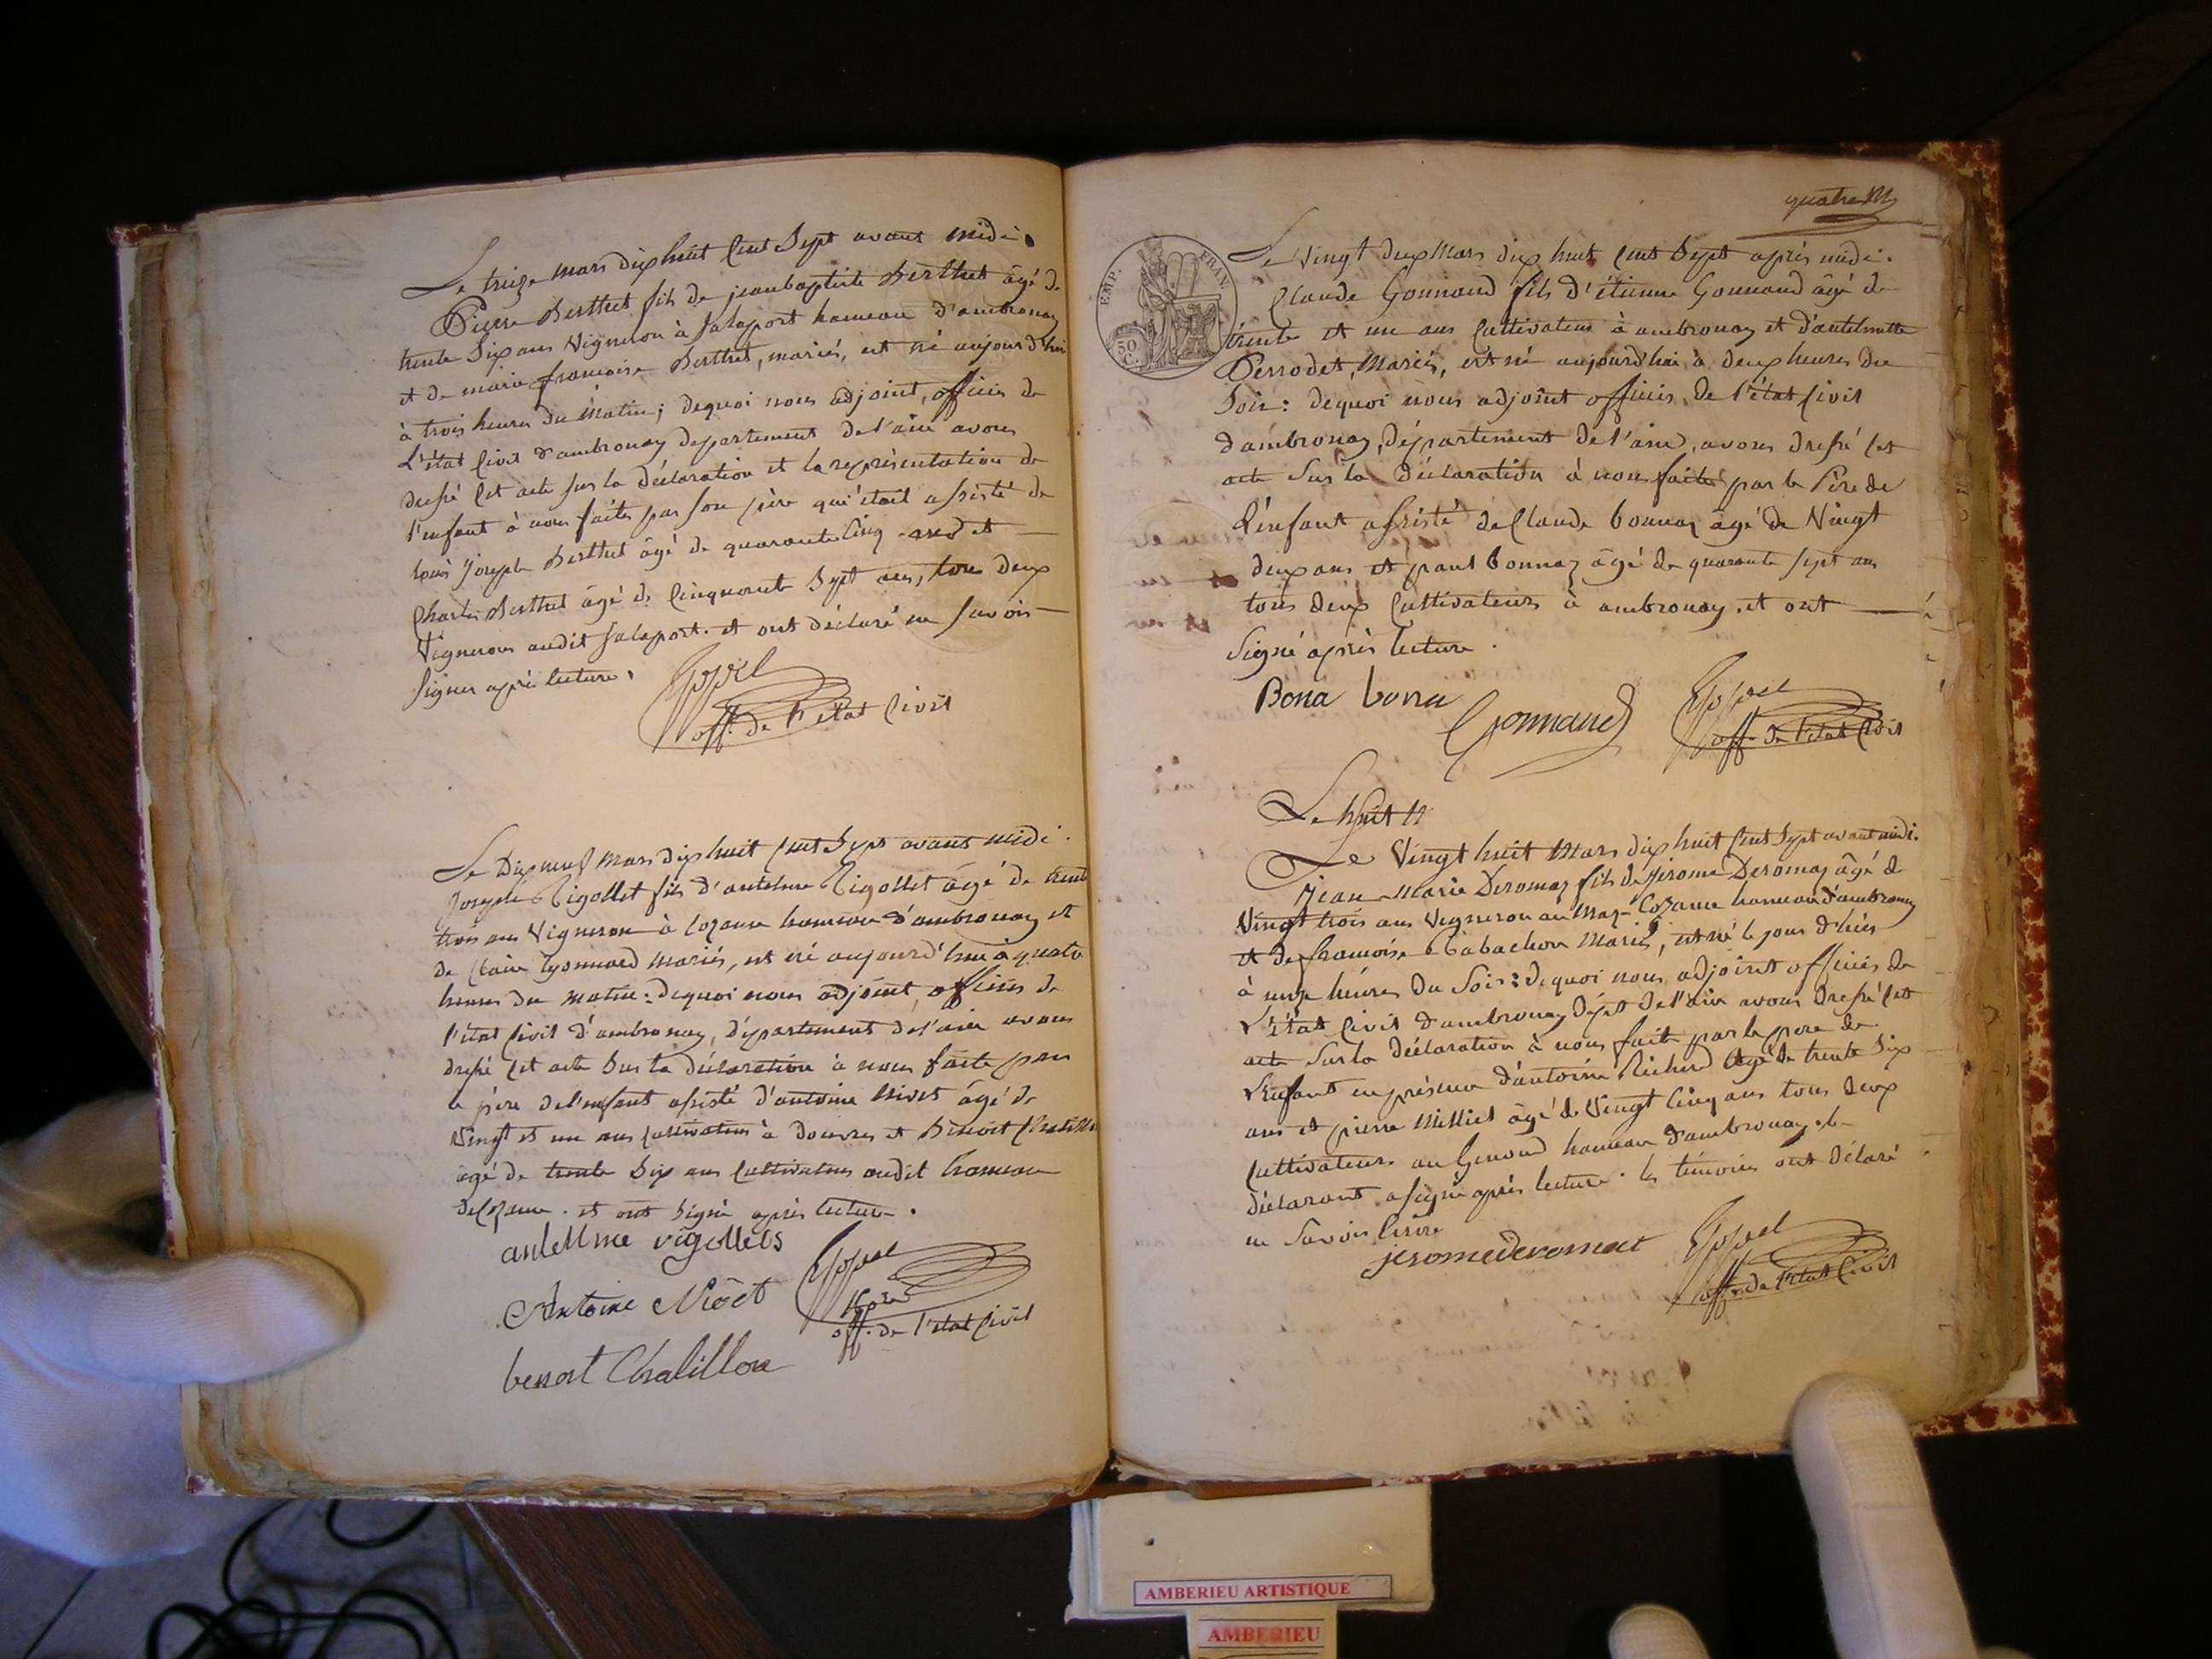 Le treize mars dix huit cent Sept avant midi.
Pierre Berthet fils de jeanbaptiste Berthet âgé de
trente Six ans Vigneron à Salaport hameau d'ambronay
et de marie francoise Berthet, mariés, est né aujourd'hui
à trois heures du matin; dequoi nous adjoint, officier de
L'état Civil d'ambronay departement de l'ain avons
dressé Cet acte sur la déclaration et la représentation de
l'enfant à nous faites par son père qui était assisté de
Joseph Berthet âgé de quarante Cinq ans et
Charles Berthet âgé de Cinquante Sept ans, tous deux
Vignerons audit Salaport. et ont déclaré ne savoir
signer après lecture.
off. de l'état Civil
Le Dix neuf mars dix huit Cent Sept avant midi.
Joseph Rigollet fils d'antelme Rigollet âgé de trente
trois ans Vigneron à Cozance hameau d'ambronay et
de Claire mariés, est né aujourd'hui à quatre
heures du matin: dequoi nous adjoint, officier de
l'état Civil d'ambronay, département de l'ain avons
dressé Cet acte Sur la déclaration à nous faite par
le père de l'enfant assisté d'antoine Nivet âgé de
Vingt et un ans Cultivateur à douvres et Benoit Chatillon
âgé de trente Six ans Cultivateur audit hameau
de Cozance. et ont Signé après lecture.
antellme rigollets
Antoine
off. de l'état Civil
benoit Chalillon
quatre
EMP. FRAN.
50 C.
Le Vingt deux Mars dix huit Cent Sept après midi.
Claude Gonnand fils d'étienne Gonnand âgé de
trente et un ans Cultivateur à ambronay et d'antelmette
Perrodet, Mariés, est né aujourd'hui à deux heures du
Soir: dequoi nous adjoint officier de l'état Civil
d'ambronay, département de l'ain, avons dressé Cet
acte Sur la Déclaration à nous faite par le Père de
L'enfant assisté de Claude bonnaz âgé de Vingt
deux ans et paul bonnaz âgé de quarante sept ans
tous deux Cultivateurs à ambronay. et ont
Signé après lecture.
Bona bona
Gonnand
off. de l'état Civil
Le huit
Le Vingt huit Mars dix huit Cent Sept avant midi.
Jean-Marie Deromaz fils de Jérome Deromaz âgé de
Vingt trois ans Vigneron au Cozance hameau d'ambronay
et de francoise Tabachon Mariés, est né le jour d'hier
à onze heures du Soir: dequoi nous adjoint officier de
L'état Civil d'ambronay dépt de l'ain avons dressé Cet
acte Sur la déclaration à nous faite par le père de
L'enfant en présence d'antoine Richerd âgé de trente Six
ans et pierre Milliet âgé de Vingt Cinq ans tous deux
Cultivateurs au Genoud hameau d'ambronay. le
déclarant a signé après lecture. les témoins ont déclaré
ne Savoir
jeromederomat
off. de l'état Civil
AMBERIEU ARTISTIQUE
AMBERIEU